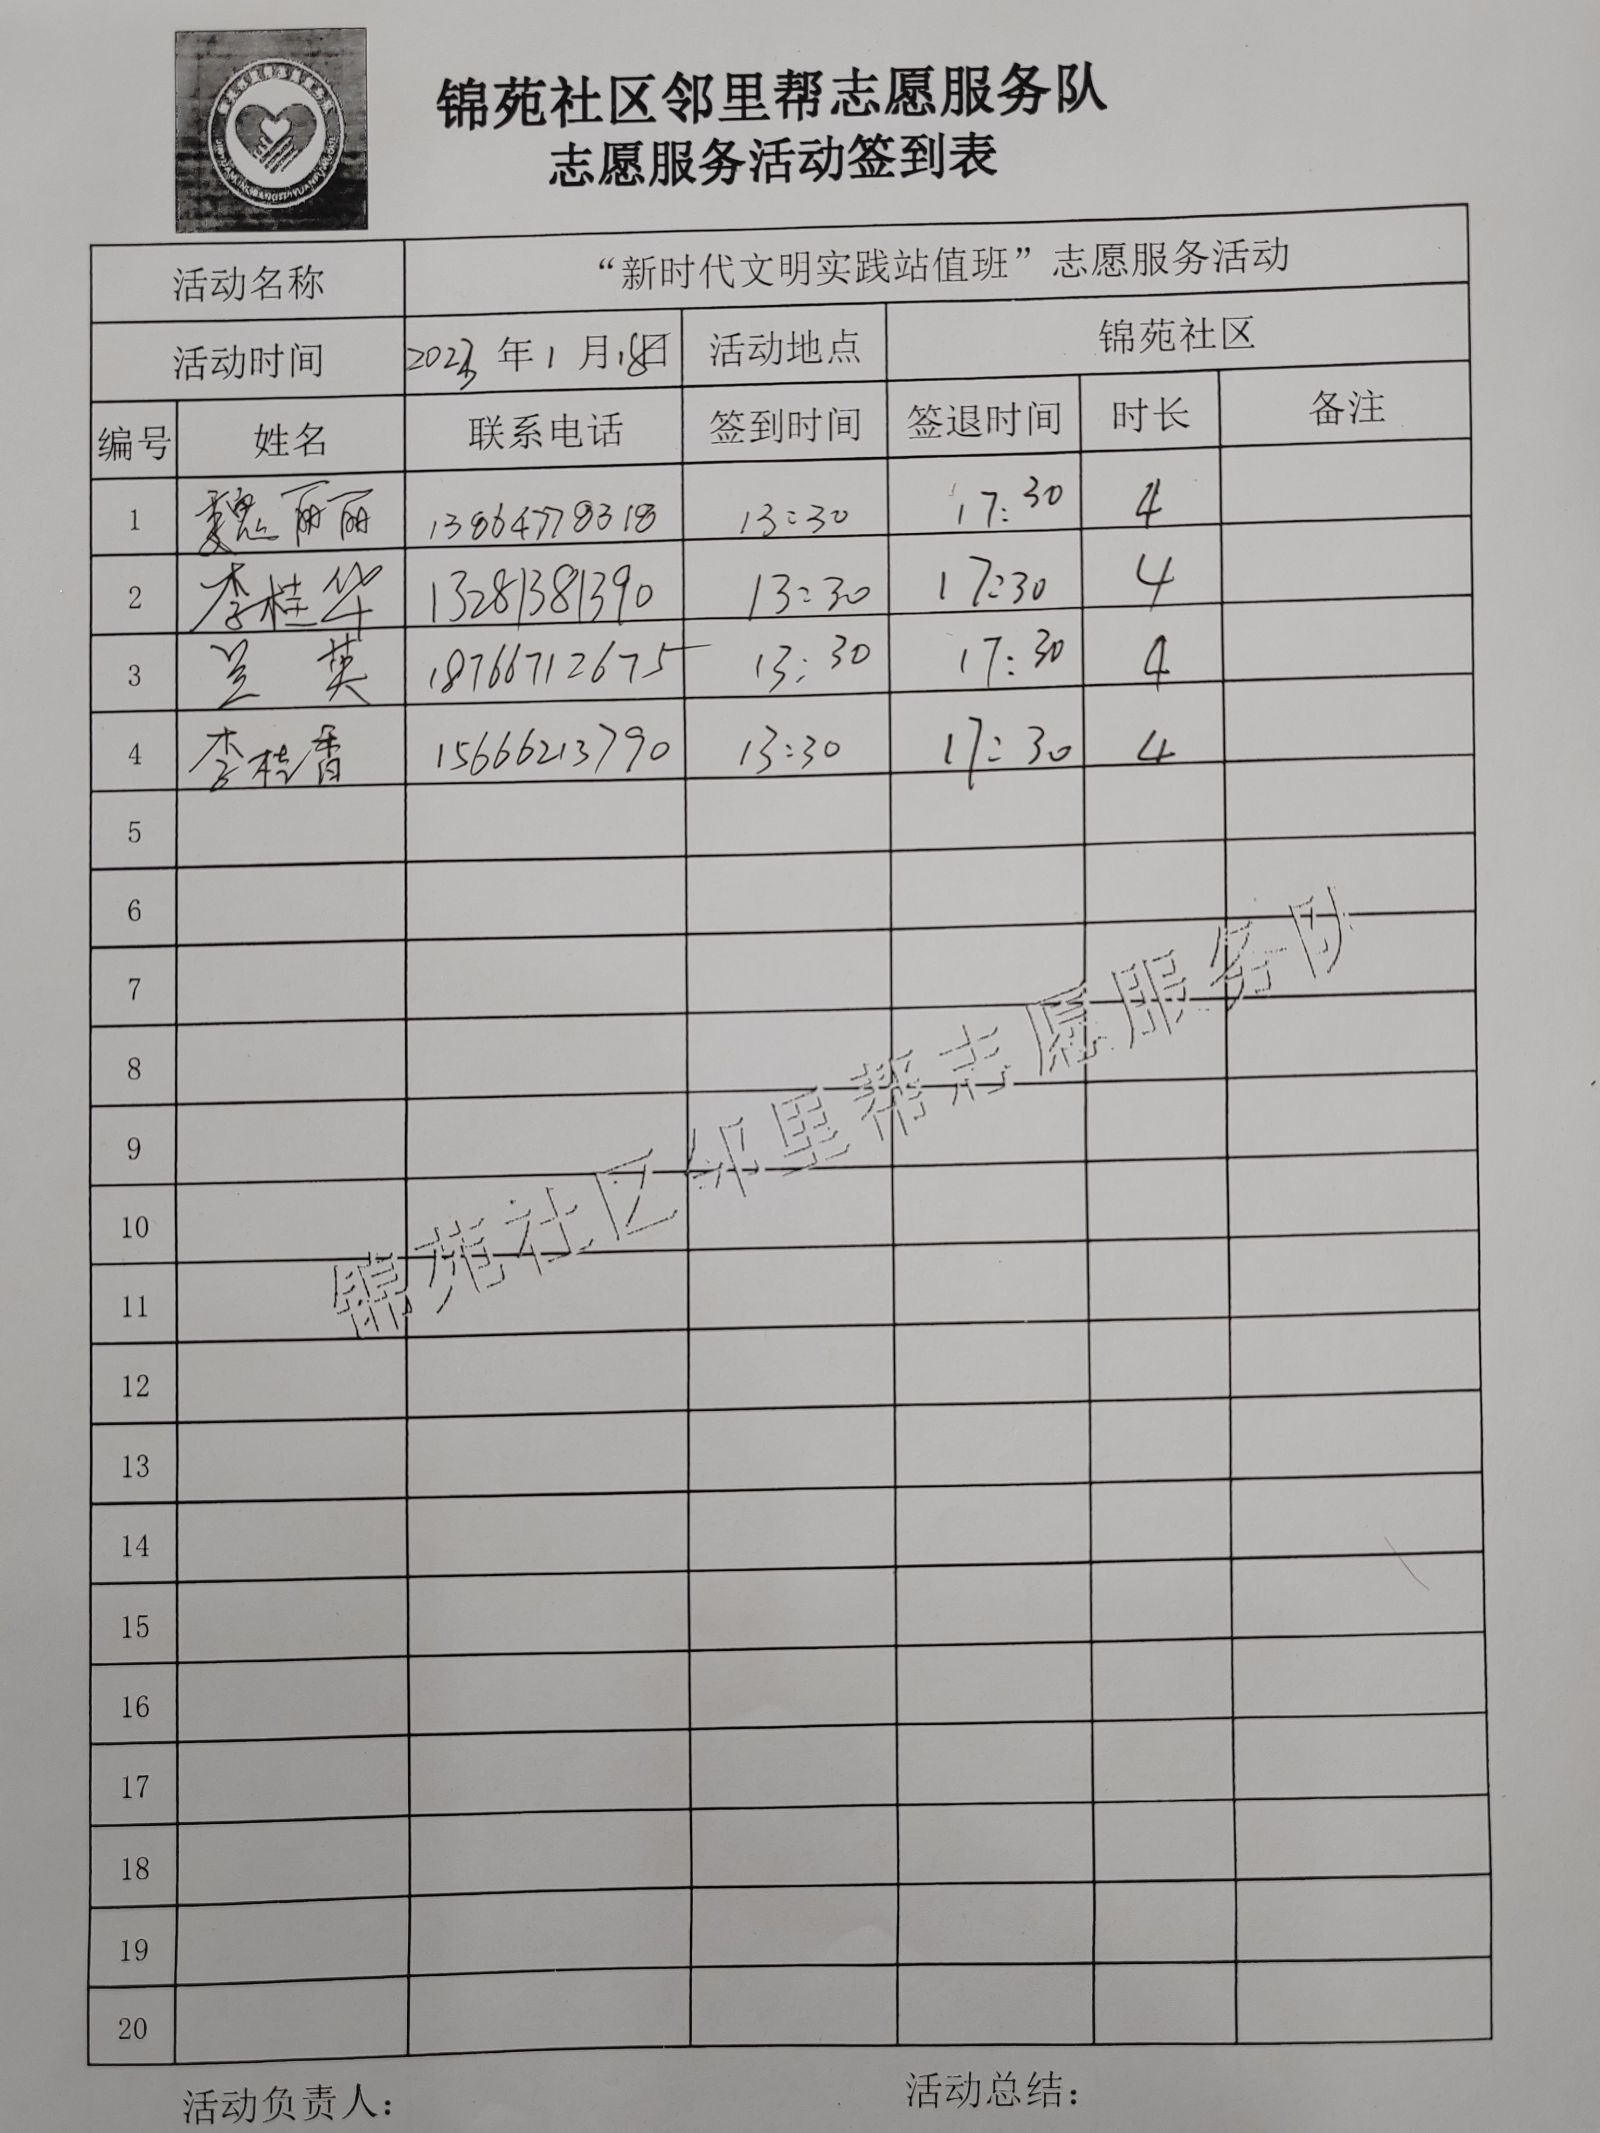 锦苑社区邻里帮志愿服务队
志愿服务活动签到表
活动名称 “新时代文明实践站值班”志愿服务活动
活动时间 2023 年 1 月 18日 活动地点 锦苑社区
编号 姓名 联系电话 签到时间 签退时间 时长 备注
1 魏丽丽 13864778318 13:30 17:30 4
2 李桂华 13281381390 13:30 17:30 4
3 兰英 18766712675 13:30 17:30 4
4 李桂香 15666213790 13:30 17:30 4
5
6
7
8
9
10
11
12
13
14
15
16
17
18
19
20
锦苑社区邻里帮志愿服务队
活动负责人: 活动总结: